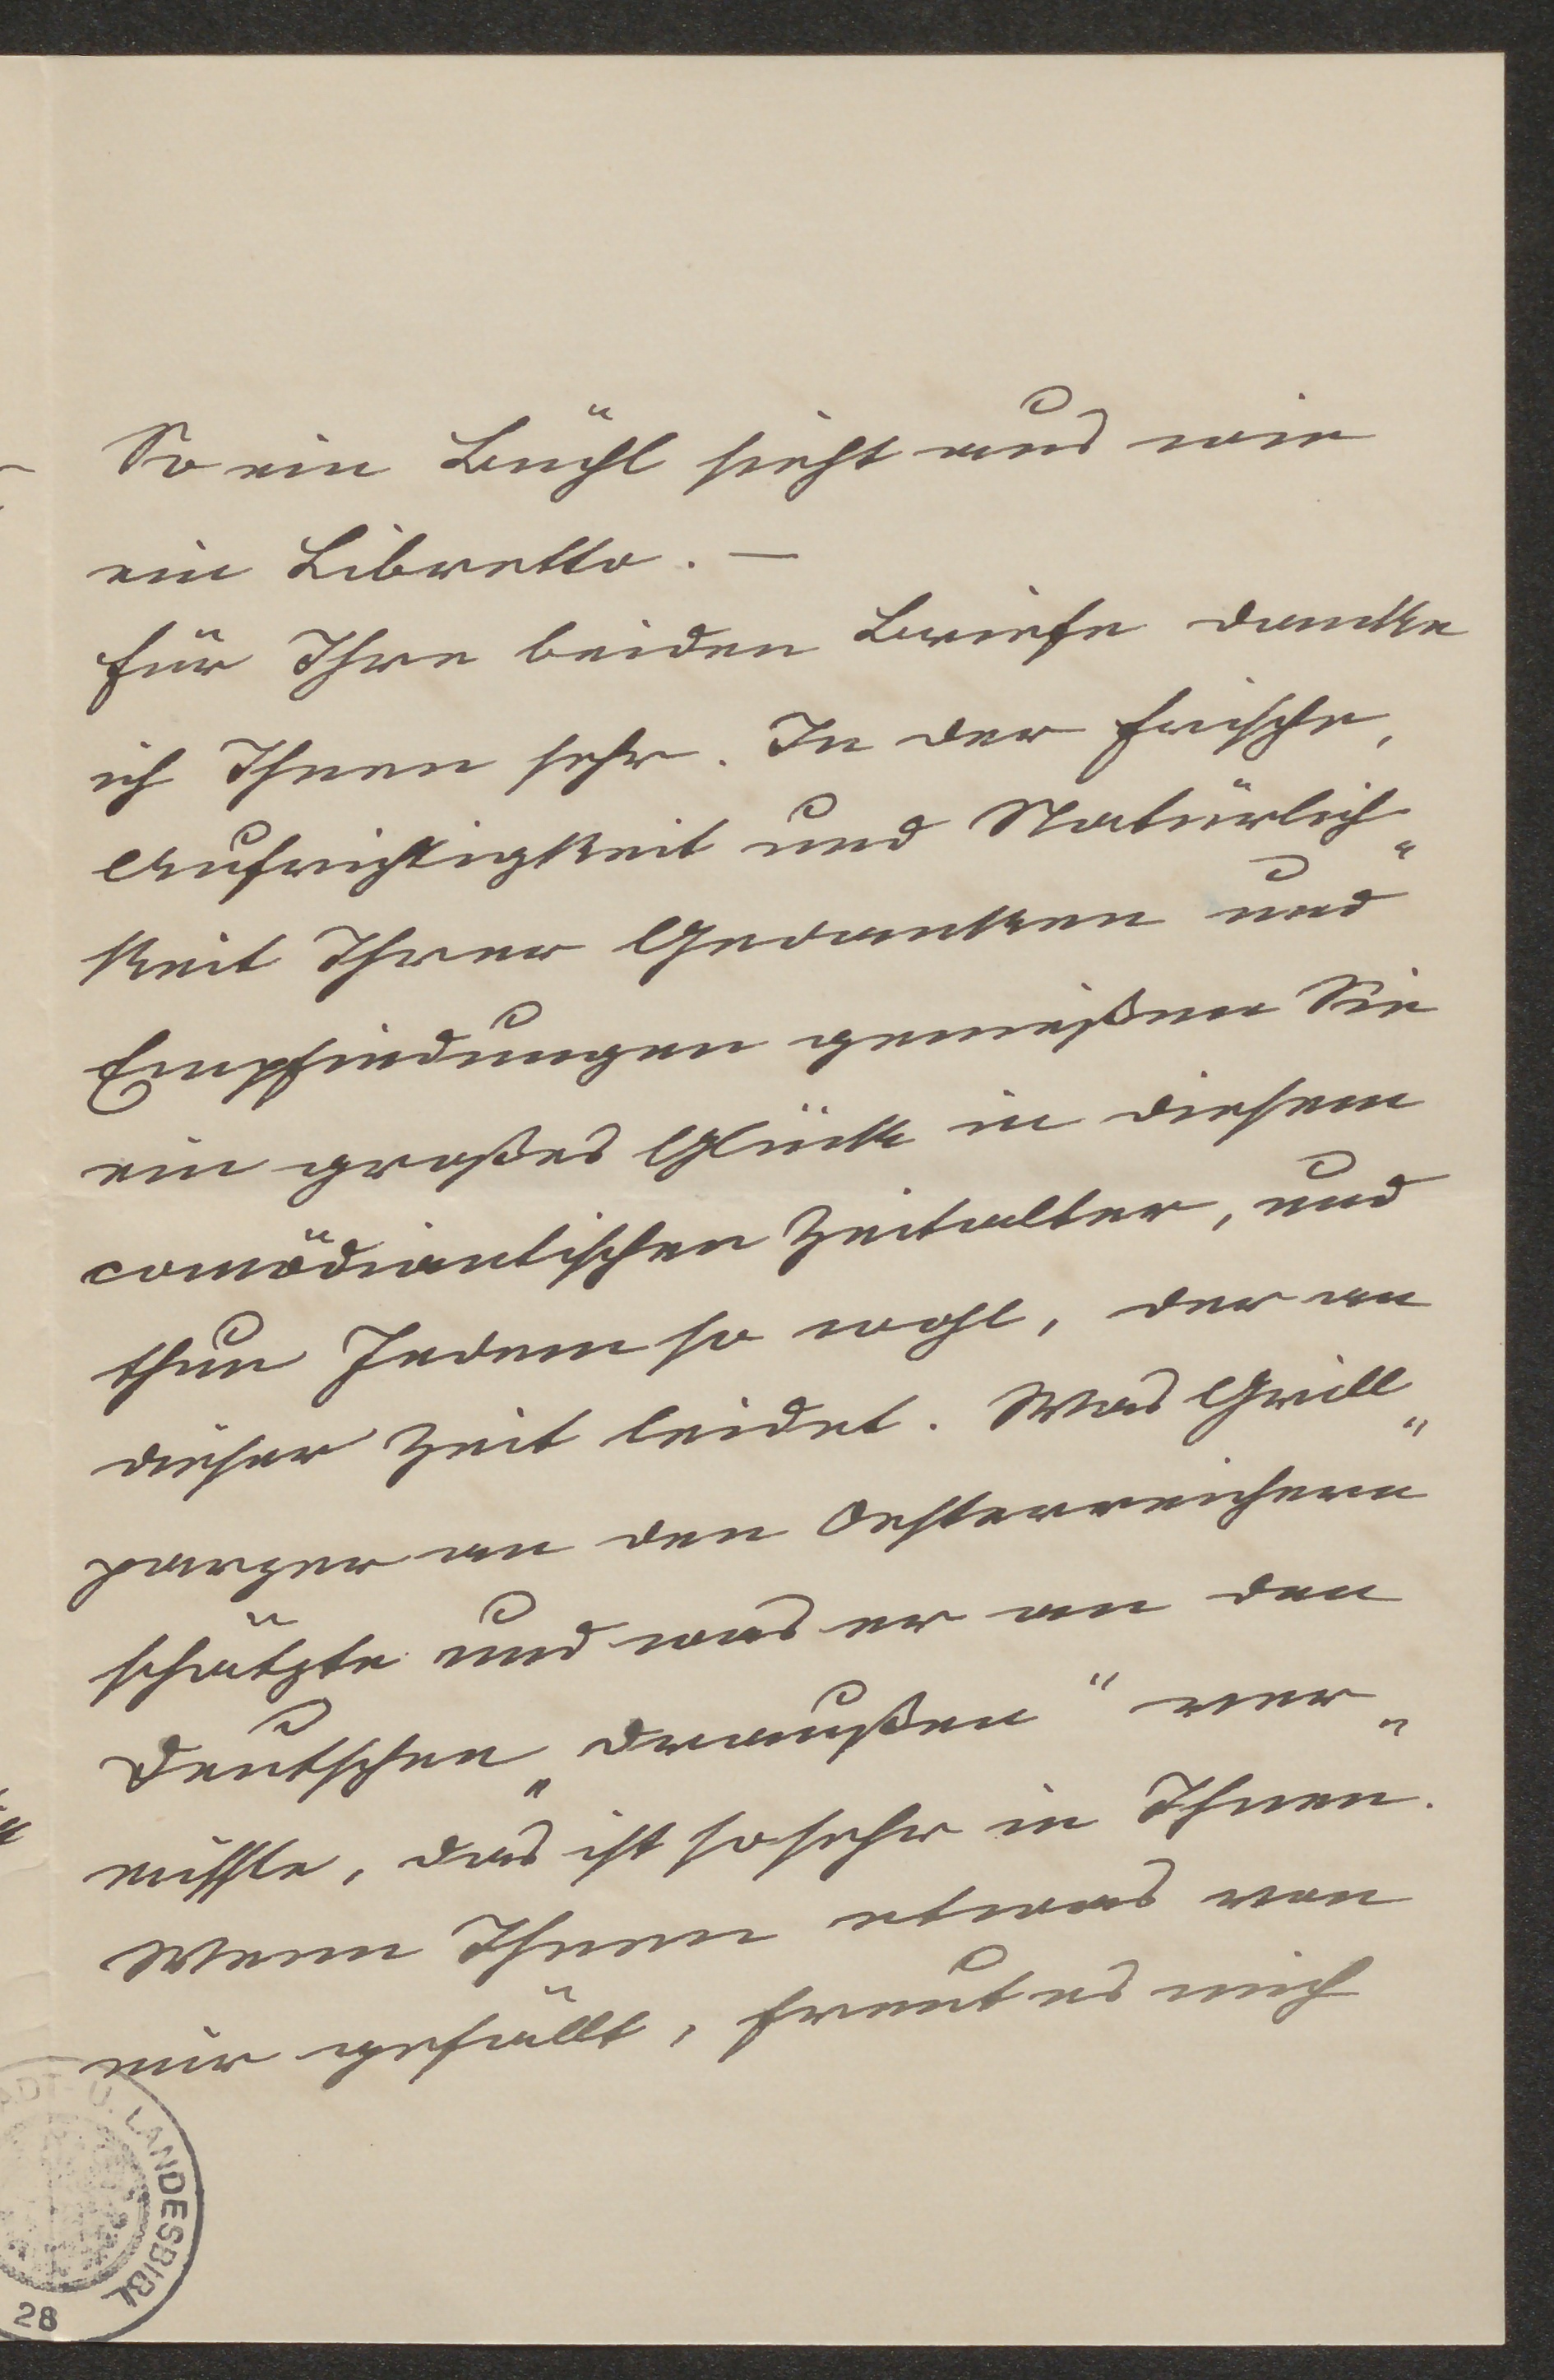 So ein Büchl sieht aus wie
ein Libretto. —
Für Ihre beiden Briefe danke
ich Ihnen sehr. In der Frische,
Aufrichtigkeit und Natürlich„
keit Ihrer Gedanken und
Empfindungen genießen Sie
ein großes Glück in diesem
comödiantischen Zeitalter, und
thun Jedem so wohl, der an
dieser Zeit leidet. Was Grill„
parzer an den Oesterreichern
schätzte und was er an den
Deutschen „draußen“ ver„
mißte, das ist so sehr in Ihnen.
Wenn Ihnen etwas von
mir gefällt, freut es mich
ADT- U. LANDESBIBL
28